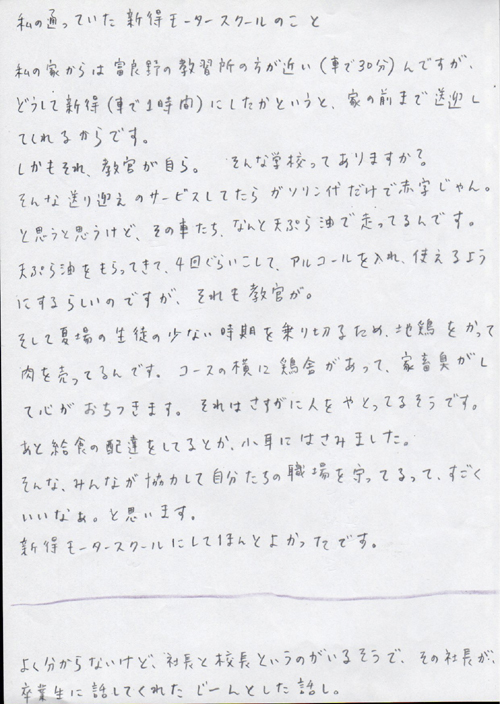 私の通っていた新得モータースクールのこと
私の家からは富良野の教習所の方が近い(車で30分)んですが、
どうして新得(車で1時間)にしたかというと、家の前まで送迎し
てくれるからです。
しかもそれ、教官が自ら。 そんな学校ってありますか?
そんな送り迎えのサービスしてたらガソリン代だけで赤字じゃん。
と思うと思うけど、その車たち、なんと天ぷら油で走ってるんです。
天ぷら油をもらってきて、4回ぐらいこして、アルコールを入れ、使えるよう
にするらしいのですが、それも教官が。
そして夏場の生徒の少ない時期を乗り切るため、地鶏をかって
肉を売ってるんです。コースの横に鶏舎があって、家畜臭がし
て心がおちつきます。それはさすがに人をやとってるそうです。
あと給食の配達をしてるとか、小耳にはさみました。
そんな、みんなが協力して自分たちの職場を守ってるって、すごく
いいなぁ。と思います。
新得モータースクールにしてほんとよかったです。
よく分からないけど、社長と校長というのがいるそうで、その社長が、
卒業生に話してくれたじーんとした話し。